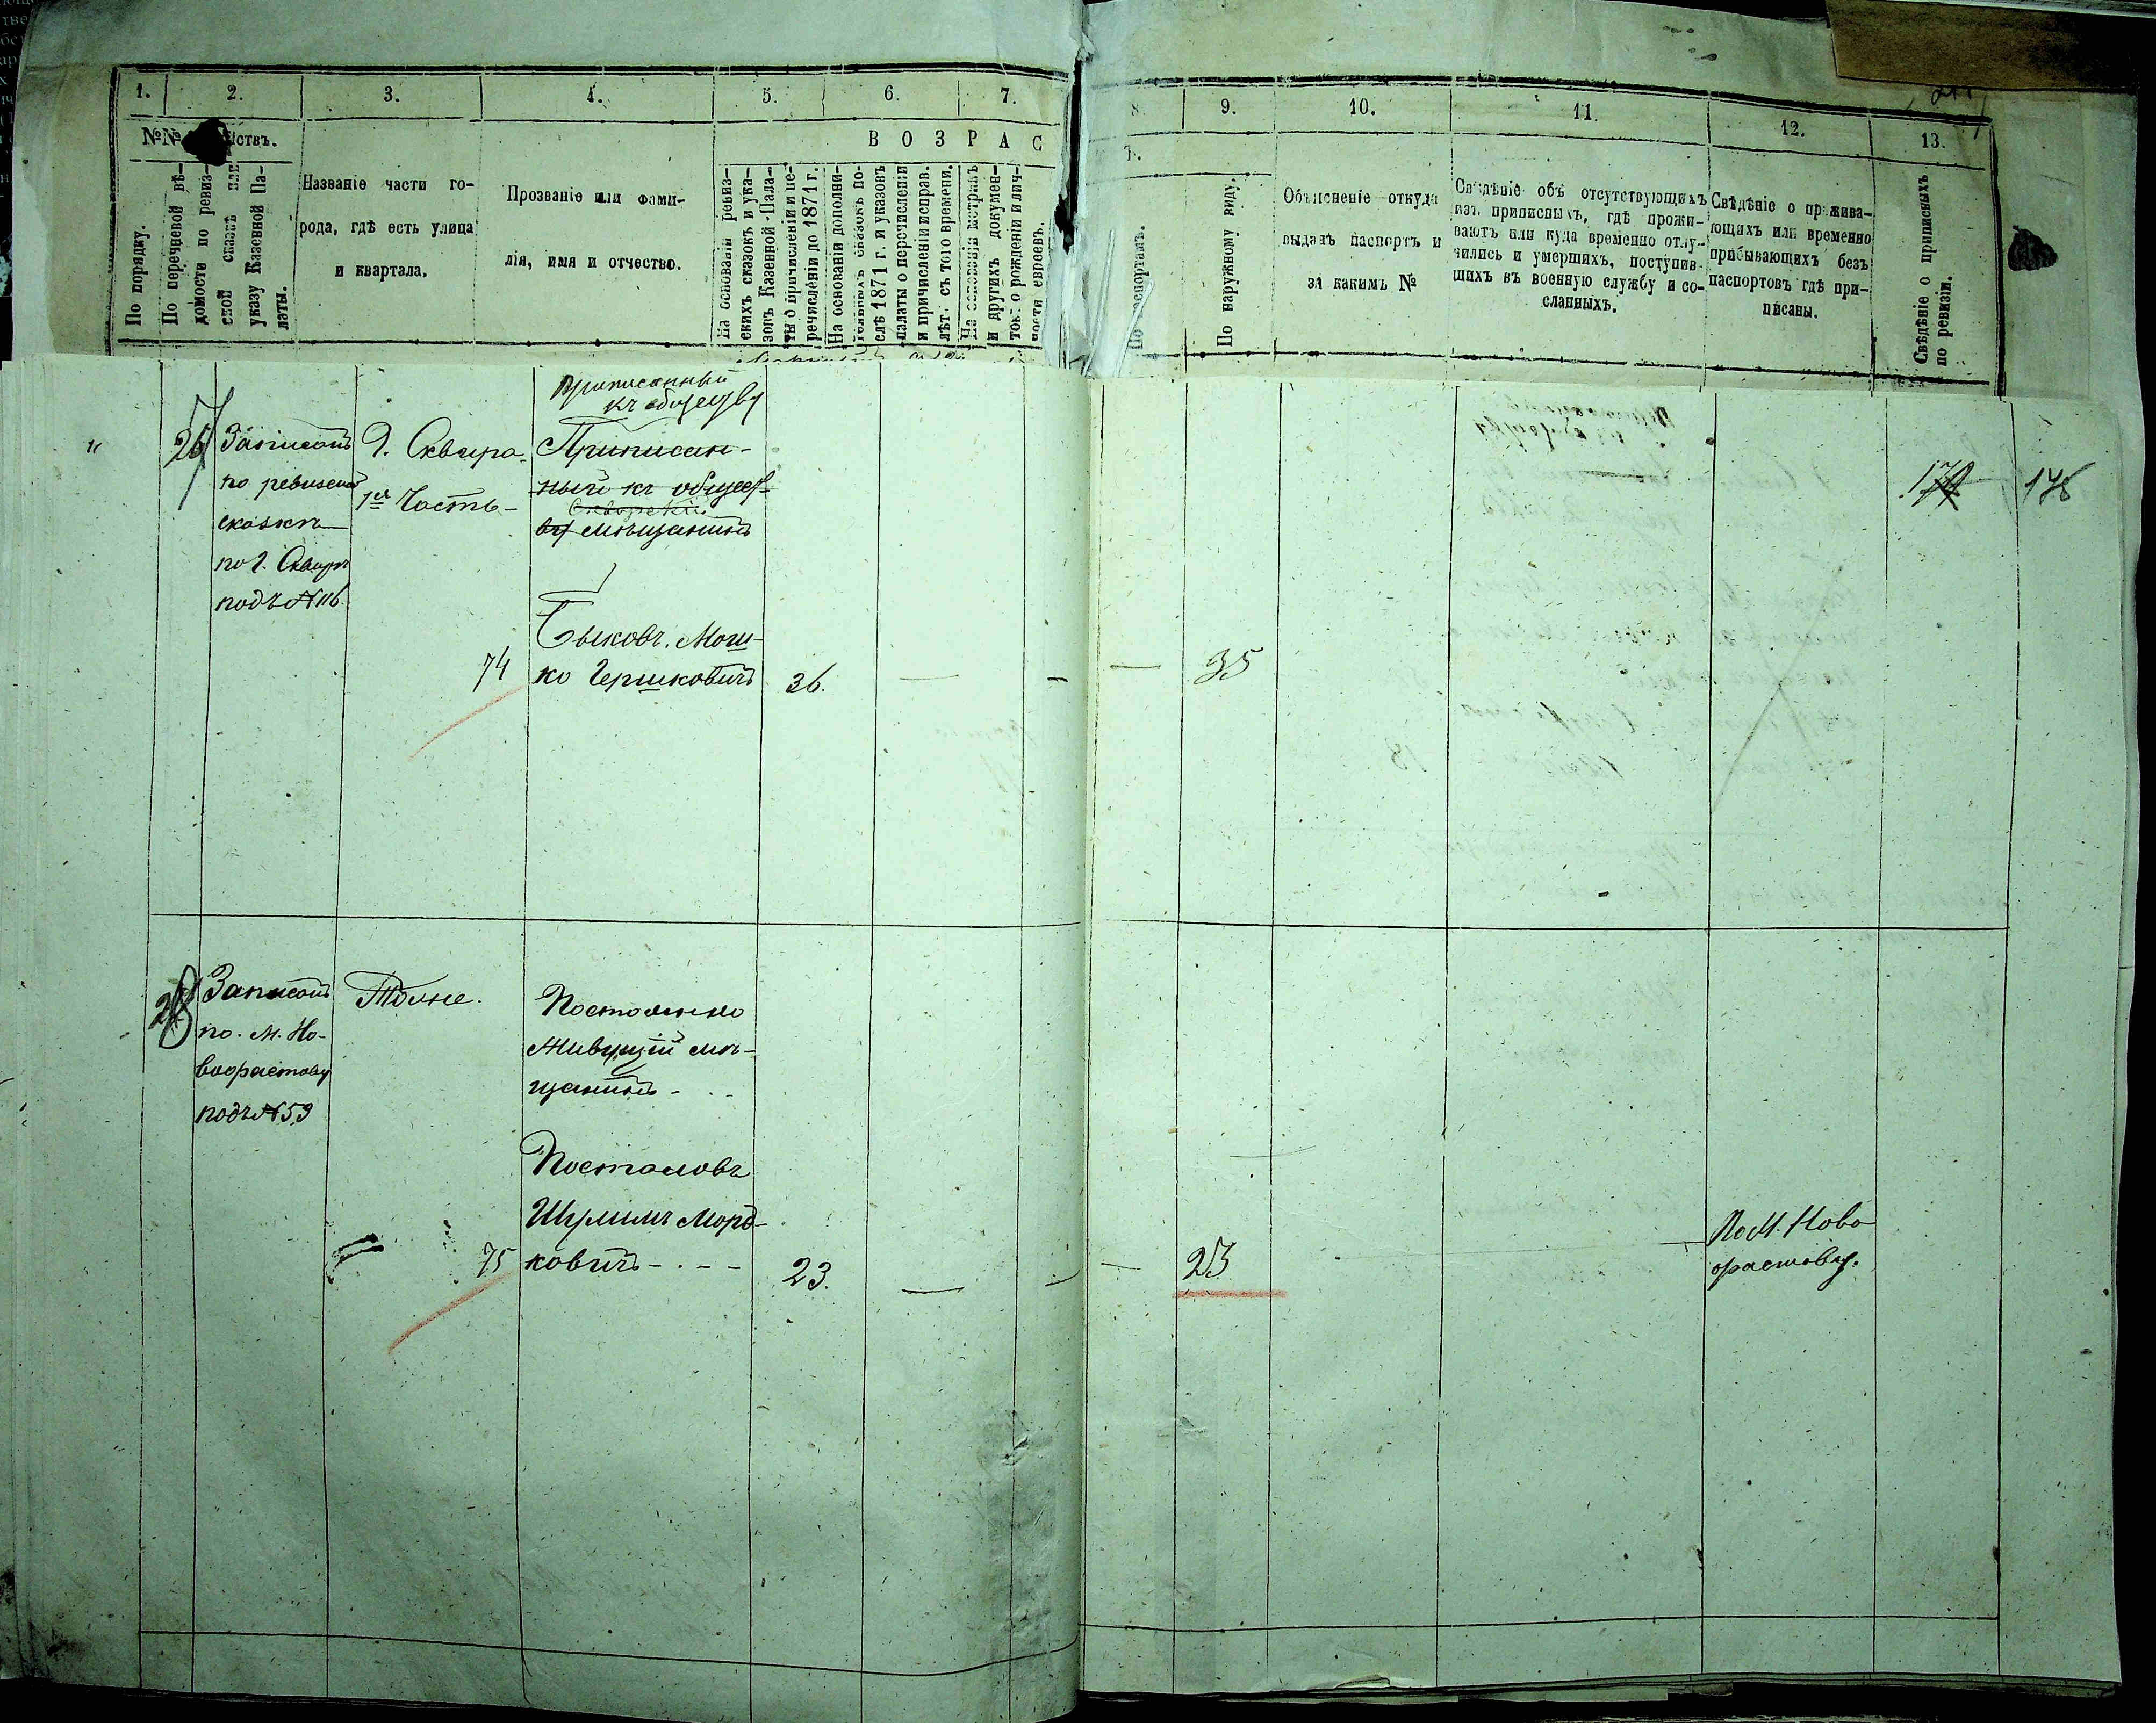 1. 2. 3. 4. 5. 6. 7. 8. 9. 10. 11. 12. 13.
№№ ствъ.
В О З Р А С Т.
По порядку.
По перечневой вѣ-
домости по ревиз-
ской сказкѣ или
указу Казенной Па-
латы.
Названіе части го-
рода, гдѣ есть улица
и квартала.
Прозваніе или фами-
лія, имя и отчество.
На основаніи ревиз-
скихъ сказокъ и ука-
зовъ Казенной Пала-
ты о причисленіи и пе-
речисленіи до 1871 г.
На основаніи дополни-
тельныхъ сказокъ по-
слѣ 1871 г. и указовъ
палаты о перечисленіи
и причисленіи исправ.
лѣтъ съ того времени.
На основаніи метрикъ
и другихъ докумен-
товъ о рожденіи и лич-
ности евреевъ.
По паспортамъ.
По наружному виду.
Объясненіе откуда
выданъ паспортъ и
за какимъ №
Свѣдѣніе объ отсутствующихъ
изъ приписныхъ, гдѣ прожи-
ваютъ или куда временно отлу-
чились и умершихъ, поступив-
шихъ въ военную службу и со-
сланныхъ.
Свѣдѣніе о прожива-
ющихъ или временно
прибывающихъ безъ
паспортовъ гдѣ при-
писаны.
Свѣдѣніе о приписныхъ
по ревизіи.
приписанный
къ обществу
26
Записанъ
по ревизской
сказкѣ
по г. Сквирѣ
подъ № 116
Г. Сквира
1я Часть
Приписан-
ный къ общест-
Сквирскій
ву мѣщанинъ
Быковъ Мош-
74 ко Гершковичъ 36. — — — 35
174 178
Записанъ
по м. Но-
вофастову
подъ № 59
Тоже.
Постоянно
живущій мѣ-
щанинъ
Постоловъ
Шулимъ Морд-
75 ковичъ 23. — — — 23
По м. Ново
фастову.